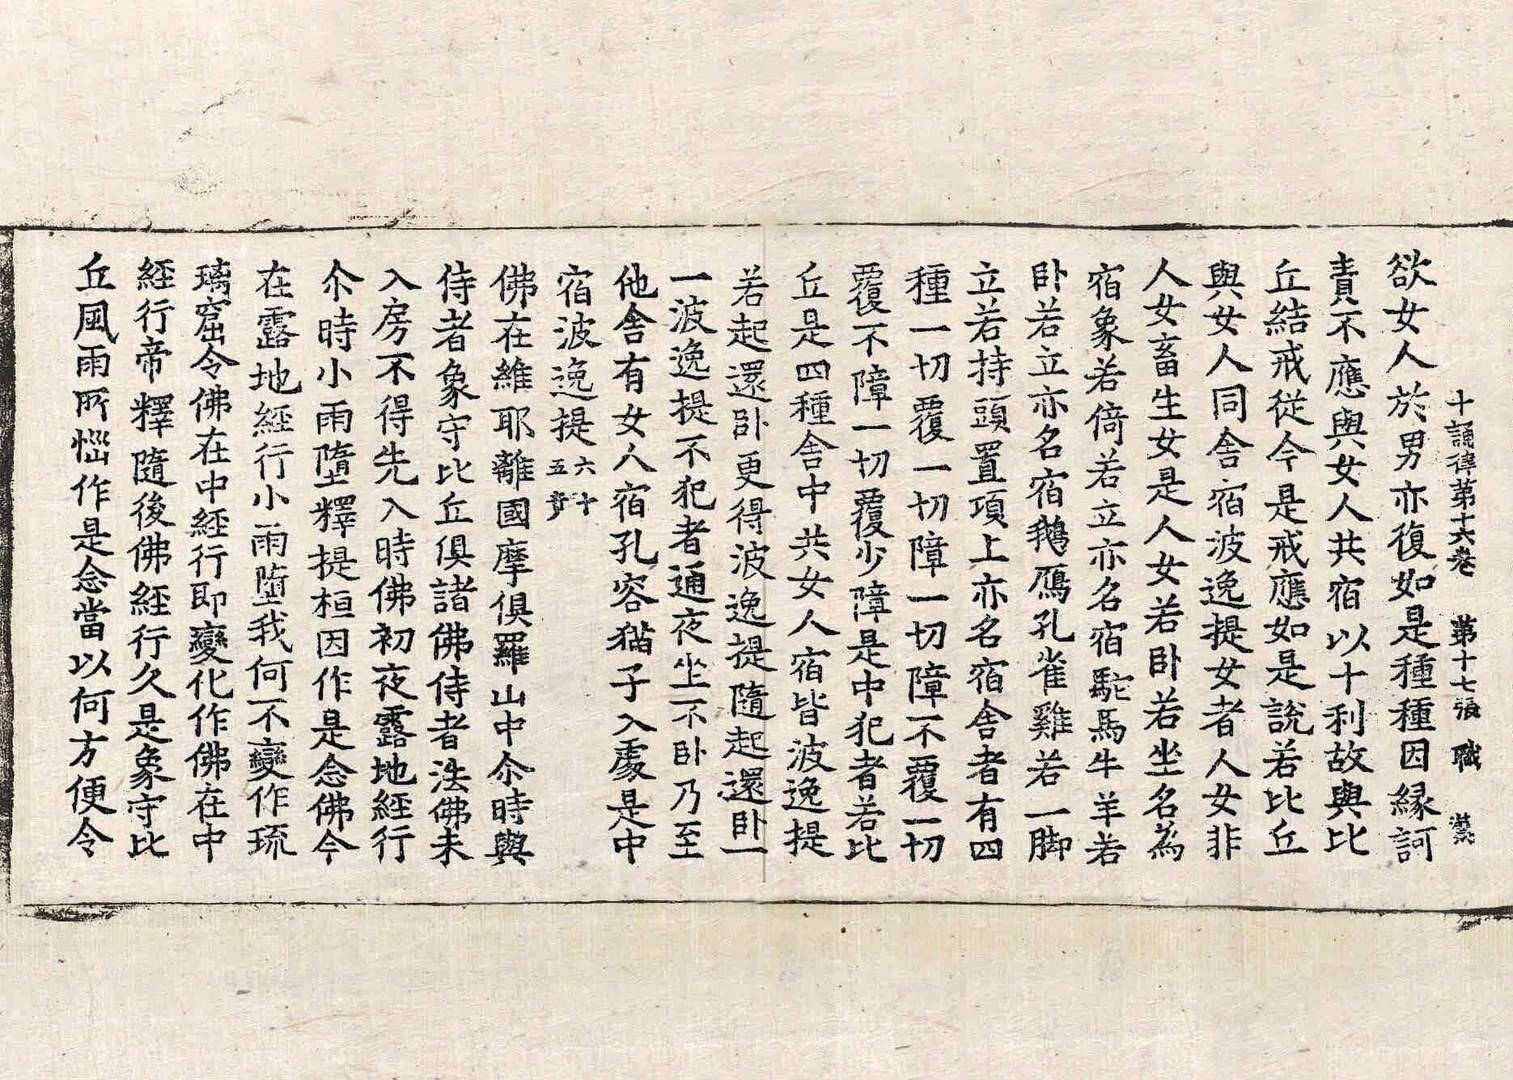 十誦律第十六卷　第十七張　職
欲女人於男亦復如是種種因緣訶
責不應與女人共宿以十利故與比
丘結戒從今是戒應如是說若比丘
與女人同舍宿波逸提女者人女非
人女畜生女是人女若卧若坐名為
宿象若倚若立亦名宿駝馬牛羊若
卧若立亦名宿鵝鴈孔雀雞若一脚
立若持頭置項上亦名宿舍者有四
種一切覆一切障一切障不覆一切
覆不障一切覆少障是中犯者若比
丘是四種舍中共女人宿皆波逸提
若起還卧更得波逸提隨起還卧一
一波逸提不犯者通夜坐不卧乃至
他舍有女人宿孔容猫子入處是中
宿波逸提六十五竟
佛在維耶離國摩俱羅山中尒時與
侍者象守比丘俱諸佛侍者法佛未
入房不得先入時佛初夜露地經行
尒時小雨墮釋提桓因作是念佛今
在露地經行小雨墮我何不變作琉
璃窟令佛在中經行即變化作佛在中
經行帝釋隨後佛經行久是象守比
丘風雨所惱作是念當以何方便令